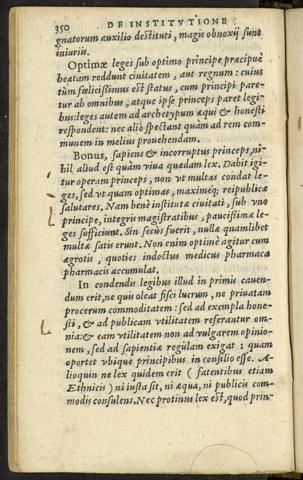 350 DE INSTITVTIONE
gnatorum auxilio destituti, magis obnoxij sunt
iniurijs.
Optimæ leges sub optimo principe præcipuè
beatam reddunt ciuitatem, aut regnum: cuius
tùm fœlicissimus est status, cum principi pare-
tur ab omnibus, atque ipse princeps paret legi-
bus: leges autem ad archetypum æqui & honesti
respondent: nec aliò spectant quàm ad rem com-
munem in melius prouehendam.
Bonus, sapiens & incorruptus princeps, ni-
hil aliud est quàm viua quædam lex. Dabit igi-
tur operam princeps, non vt multas condat le-
ges, sed vt quam optimas, maximéq; reipublicæ
salutares. Nam benè institutæ ciuitati, sub vno
principe, integris magistratibus, paucissimæ le-
ges sufficiunt. Sin secùs fuerit, nullæ quamlibet
multæ satis erunt. Non enim optimè agitur cum
ægrotis, quoties indoctus medicus pharmaca
pharmacis accumulat.
In condendis legibus illud in primis cauen-
dum erit, ne quis oleat fisci lucrum, ne priuatam
procerum commoditatem: sed ad exempla hone-
sti, & ad publicam vtilitatem referantur om-
nia: & eam vtilitatem non ad vulgarem opinio-
nem, sed ad sapientiæ regulam exigat: quam
oportet vbique principibus in consilio esse. A-
lioquin ne lex quidem erit (fatentibus etiam
Ethnicis) ni iusta sit, ni æqua, ni publicis com-
modis consulens. Nec protinus lex est, quod prin-